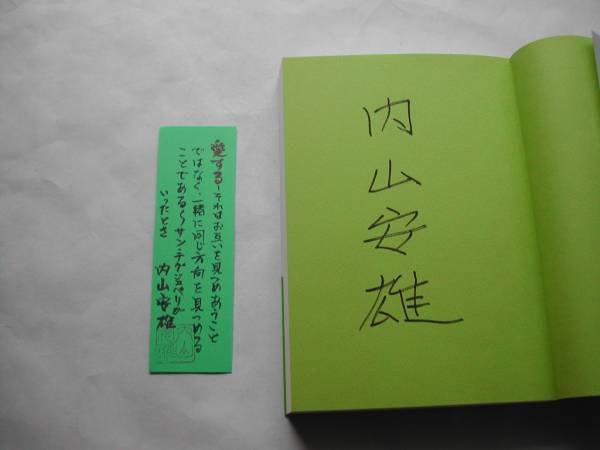 内山安雄
愛する－それはお互いを見つめあうこと
ではなく、一緒に同じ方向を見つめる
ことである～サン・テグジュペリが
いったとさ
内山安雄